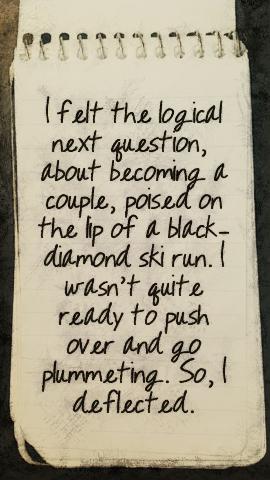 I felt the logical
next question,
about becoming a
couple, poised on
the lip of a black-
diamond ski run. I
wasn't quite
ready to push
over and go
plummeting. So, I
deflected.